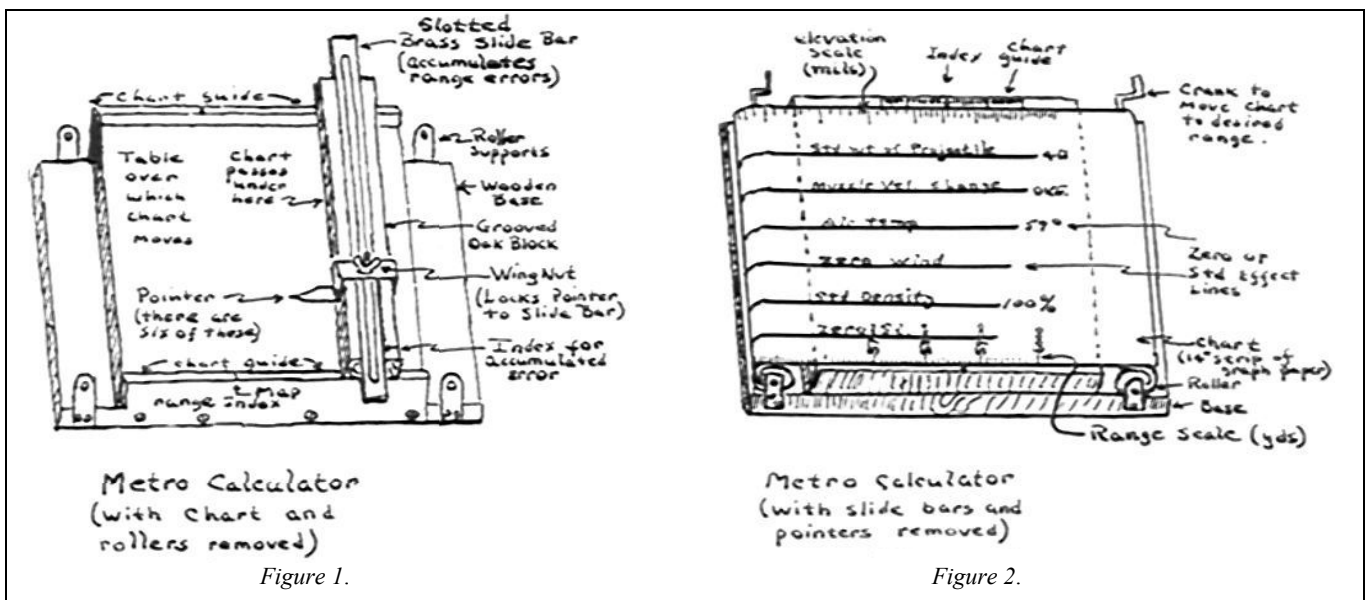 Slotted
Brass Slide Bar
(accumulates
range errors)
chart guide
Roller
Supports
Table
over
which
chart
moves
Chart
passes
under
here
Wooden
Base
Grooved
Oak Block
Wing Nut
(Locks Pointer
to Slide Bar)
Pointer
(there are
six of these)
Index for
Accumulated
Error
chart guide
range
Map
Index
Metro Calculator
(with chart and
rollers removed)
Figure 1.
Elevation
Scale
(mils)
Index
Chart
guide
Crank to
Move Chart
to desired
range.
Std wt of Projectile
Muzzle Vel. Change
Air Temp
59°
zero wind
Zero or
Std Effect
Lines
Std Density
100%
Chart
(14" strip of
graph paper)
Roller
Base
Range Scale (yds)
Metro Calculator
(with slide bars and
pointers removed)
Figure 2.